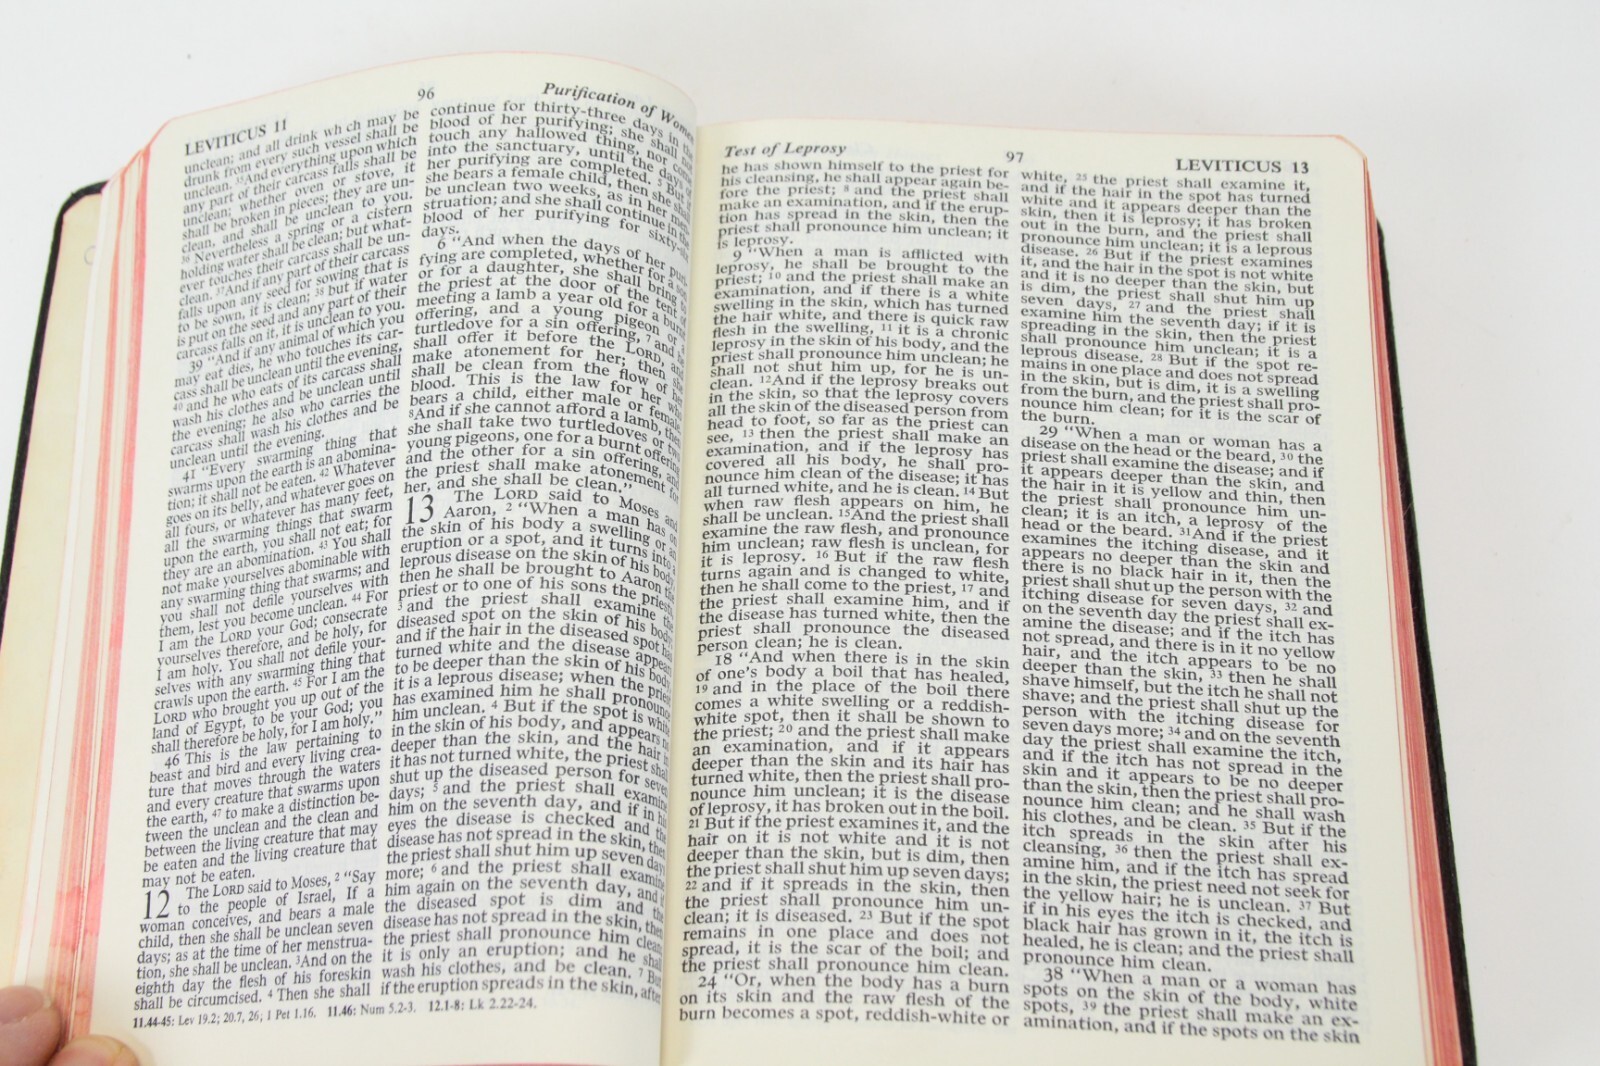 LEVITICUS 11
96
Purification of Women
unclean; and all drink which may be
drunk from every such vessel shall be
unclean. 35And everything upon which
any part of their carcass falls shall be
unclean; whether oven or stove, it
shall be broken in pieces; they are un-
clean, and shall be unclean to you.
36 Nevertheless a spring or a cistern
holding water shall be clean; but what-
ever touches their carcass shall be un-
clean. 37And if any part of their carcass
falls upon any seed for sowing that is
to be sown, it is clean; 38 but if water
is put on the seed and any part of their
carcass falls on it, it is unclean to you.
39 "And if any animal of which you
may eat dies, he who touches its car-
cass shall be unclean until the evening,
40 and he who eats of its carcass shall
wash his clothes and be unclean until
the evening; he also who carries the
carcass shall wash his clothes and be
unclean until the evening.
41 "Every swarming thing that
swarms upon the earth is an abomina-
tion; it shall not be eaten. 42 Whatever
goes on its belly, and whatever goes on
all fours, or whatever has many feet,
all the swarming things that swarm
upon the earth, you shall not eat; for
they are an abomination. 43 You shall
not make yourselves abominable with
any swarming thing that swarms; and
you shall not defile yourselves with
them, lest you become unclean. 44 For
I am the LORD your God; consecrate
yourselves therefore, and be holy, for
I am holy. You shall not defile your-
selves with any swarming thing that
crawls upon the earth. 45 For I am the
LORD who brought you up out of the
land of Egypt, to be your God; you
shall therefore be holy, for I am holy."
46 This is the law pertaining to
beast and bird and every living crea-
ture that moves through the waters
and every creature that swarms upon
the earth, 47 to make a distinction be-
tween the unclean and the clean and
between the living creature that may
be eaten and the living creature that
may not be eaten.
12 The LORD said to Moses, 2 "Say
to the people of Israel, If a
woman conceives, and bears a male
child, then she shall be unclean seven
days; as at the time of her menstrua-
tion, she shall be unclean. 3And on the
eighth day the flesh of his foreskin
shall be circumcised. 4 Then she shall
continue for thirty-three days in the
blood of her purifying; she shall not
touch any hallowed thing, nor come
into the sanctuary, until the days of
her purifying are completed. 5 But if
she bears a female child, then she shall
be unclean two weeks, as in her men-
struation; and she shall continue in the
blood of her purifying for sixty-six
days.
6 "And when the days of her puri-
fying are completed, whether for a son
or for a daughter, she shall bring to
the priest at the door of the tent of
meeting a lamb a year old for a burnt
offering, and a young pigeon or a
turtledove for a sin offering, 7 and he
shall offer it before the LORD, and
make atonement for her; then she
shall be clean from the flow of her
blood. This is the law for her who
bears a child, either male or female.
8And if she cannot afford a lamb, then
she shall take two turtledoves or two
young pigeons, one for a burnt offering
and the other for a sin offering; and
the priest shall make atonement for
her, and she shall be clean."
13 The LORD said to Moses and
Aaron, 2 "When a man has on
the skin of his body a swelling or an
eruption or a spot, and it turns into a
leprous disease on the skin of his body,
then he shall be brought to Aaron the
priest or to one of his sons the priests,
3 and the priest shall examine the
diseased spot on the skin of his body;
and if the hair in the diseased spot has
turned white and the disease appears
to be deeper than the skin of his body,
it is a leprous disease; when the priest
has examined him he shall pronounce
him unclean. 4 But if the spot is white
in the skin of his body, and appears no
deeper than the skin, and the hair in
it has not turned white, the priest shall
shut up the diseased person for seven
days; 5 and the priest shall examine
him on the seventh day, and if in his
eyes the disease is checked and the
disease has not spread in the skin, then
the priest shall shut him up seven days
more; 6 and the priest shall examine
him again on the seventh day, and if
the diseased spot is dim and the
disease has not spread in the skin, then
the priest shall pronounce him clean;
it is only an eruption; and he shall
wash his clothes, and be clean. 7 But
if the eruption spreads in the skin, after
11.44-45: Lev 19.2; 20.7, 26; 1 Pet 1.16. 11.46: Num 5.2-3. 12.1-8: Lk 2.22-24.
Test of Leprosy
97
LEVITICUS 13
he has shown himself to the priest for
his cleansing, he shall appear again be-
fore the priest; 8 and the priest shall
make an examination, and if the erup-
tion has spread in the skin, then the
priest shall pronounce him unclean; it
is leprosy.
9 "When a man is afflicted with
leprosy, he shall be brought to the
priest; 10 and the priest shall make an
examination, and if there is a white
swelling in the skin, which has turned
the hair white, and there is quick raw
flesh in the swelling, 11 it is a chronic
leprosy in the skin of his body, and the
priest shall pronounce him unclean; he
shall not shut him up, for he is un-
clean. 12And if the leprosy breaks out
in the skin, so that the leprosy covers
all the skin of the diseased person from
head to foot, so far as the priest can
see, 13 then the priest shall make an
examination, and if the leprosy has
covered all his body, he shall pro-
nounce him clean of the disease; it has
all turned white, and he is clean. 14 But
when raw flesh appears on him, he
shall be unclean. 15And the priest shall
examine the raw flesh, and pronounce
him unclean; raw flesh is unclean, for
it is leprosy. 16 But if the raw flesh
turns again and is changed to white,
then he shall come to the priest, 17 and
the priest shall examine him, and if
the disease has turned white, then the
priest shall pronounce the diseased
person clean; he is clean.
18 "And when there is in the skin
of one's body a boil that has healed,
19 and in the place of the boil there
comes a white swelling or a reddish-
white spot, then it shall be shown to
the priest; 20 and the priest shall make
an examination, and if it appears
deeper than the skin and its hair has
turned white, then the priest shall pro-
nounce him unclean; it is the disease
of leprosy, it has broken out in the boil.
21 But if the priest examines it, and the
hair on it is not white and it is not
deeper than the skin, but is dim, then
the priest shall shut him up seven days;
22 and if it spreads in the skin, then
the priest shall pronounce him un-
clean; it is diseased. 23 But if the spot
remains in one place and does not
spread, it is the scar of the boil; and
the priest shall pronounce him clean.
24 "Or, when the body has a burn
on its skin and the raw flesh of the
burn becomes a spot, reddish-white or
white, 25 the priest shall examine it,
and if the hair in the spot has turned
white and it appears deeper than the
skin, then it is leprosy; it has broken
out in the burn, and the priest shall
pronounce him unclean; it is a leprous
disease. 26 But if the priest examines
it, and the hair in the spot is not white
and it is no deeper than the skin, but
is dim, the priest shall shut him up
seven days, 27 and the priest shall
examine him the seventh day; if it is
spreading in the skin, then the priest
shall pronounce him unclean; it is a
leprous disease. 28 But if the spot re-
mains in one place and does not spread
in the skin, but is dim, it is a swelling
from the burn, and the priest shall pro-
nounce him clean; for it is the scar of
the burn.
29 "When a man or woman has a
disease on the head or the beard, 30 the
priest shall examine the disease; and if
it appears deeper than the skin, and
the hair in it is yellow and thin, then
the priest shall pronounce him un-
clean; it is an itch, a leprosy of the
head or the beard. 31And if the priest
examines the itching disease, and it
appears no deeper than the skin and
there is no black hair in it, then the
priest shall shut up the person with the
itching disease for seven days, 32 and
on the seventh day the priest shall ex-
amine the disease; and if the itch has
not spread, and there is in it no yellow
hair, and the itch appears to be no
deeper than the skin, 33 then he shall
shave himself, but the itch he shall not
shave; and the priest shall shut up the
person with the itching disease for
seven days more; 34 and on the seventh
day the priest shall examine the itch,
and if the itch has not spread in the
skin and it appears to be no deeper
than the skin, then the priest shall pro-
nounce him clean; and he shall wash
his clothes, and be clean. 35 But if the
itch spreads in the skin after his
cleansing, 36 then the priest shall ex-
amine him, and if the itch has spread
in the skin, the priest need not seek for
the yellow hair; he is unclean. 37 But
if in his eyes the itch is checked, and
black hair has grown in it, the itch is
healed, he is clean; and the priest shall
pronounce him clean.
38 "When a man or a woman has
spots on the skin of the body, white
spots, 39 the priest shall make an ex-
amination, and if the spots on the skin